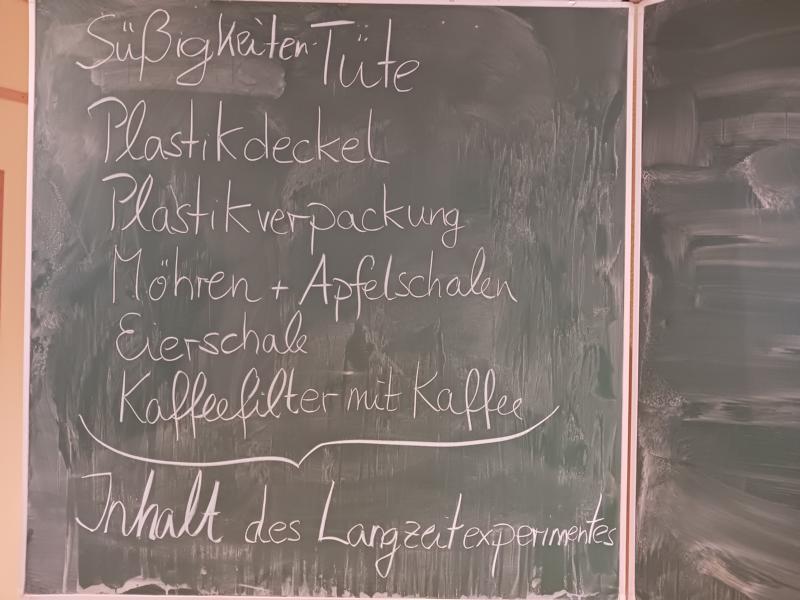 Süßigkeiten-Tüte
Plastikdeckel
Plastikverpackung
Möhren + Apfelschalen
Eierschale
Kaffeefilter mit Kaffee
Inhalt des Langzeitexperimentes